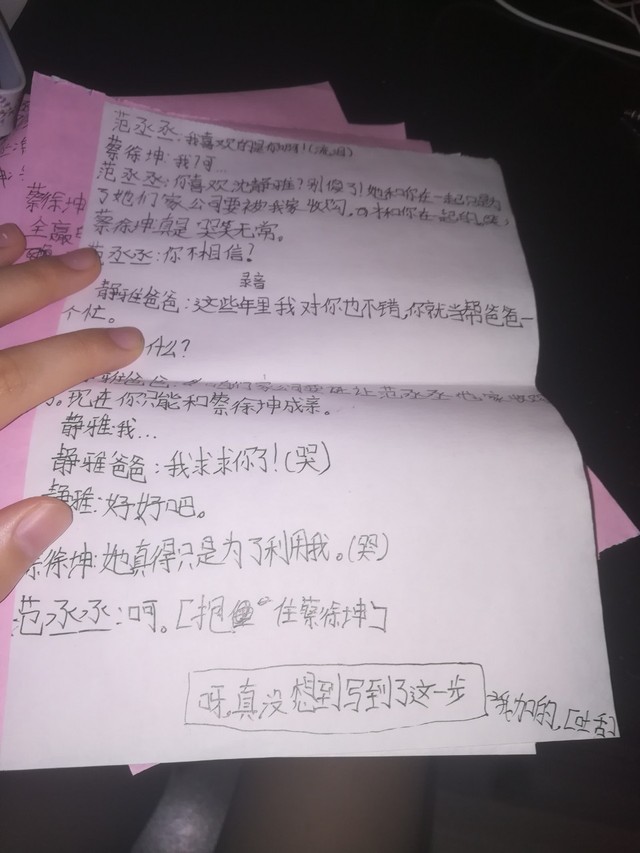 范丞丞:我喜欢的是你啊!(流泪)
蔡徐坤:我?可…
范丞丞:你喜欢沈静雅?别傻了!她和你在一起只是为
了她们家公司要被我家收购,才和你在一起的。
蔡徐坤真是哭笑无常。
范丞丞:你不相信?
录音
静雅爸爸:这些年里我对你也不错,你就当帮爸爸一
个忙。
什么?
让范丞丞他家收购
了。现在你只能和蔡徐坤成亲。
静雅:我…
静雅爸爸:我求求你了!(哭)
静雅:好好吧。
蔡徐坤:她真得只是为了利用我。(哭)
范丞丞:呵。[抱住蔡徐坤]
呀,真没想到写到了这一步
我加的,[吐舌]
蔡徐坤